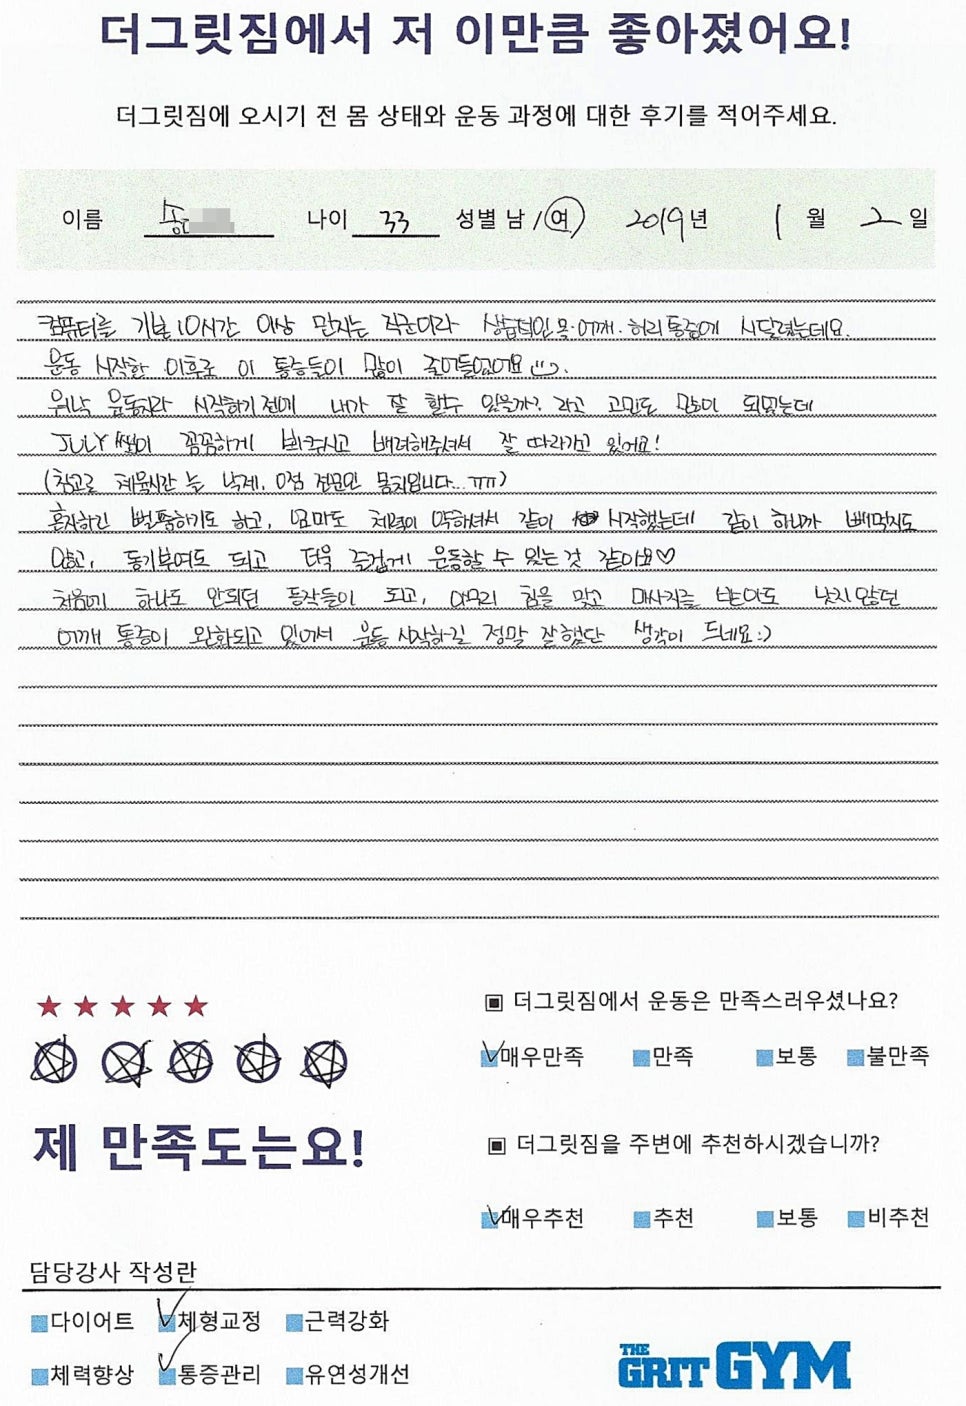 더그릿짐에서 저 이만큼 좋아졌어요!
더그릿짐에 오시기 전 몸 상태와 운동 과정에 대한 후기를 적어주세요.
이름 송 나이 33 성별 남 / 여 2019년 1월 2일
컴퓨터를 기본 10시간 이상 만지는 직군이라 상습적인 목·어깨·허리통증에 시달렸는데요.
운동 시작한 이후로 이 통증들이 많이 줄어들었어요
워낙 운동치라 시작하기 전에 내가 잘 할수 있을까? 라고 고민도 많이 되었는데
JULY 쌤이 꼼꼼하게 봐주시고 배려해주셔서 잘 따라가고 있어요!
(참고로 체육시간는 낙제. 0점 전문인 몸치입니다...ㅠㅠ)
혼자하긴 뻘쭘하기도 하고, 엄마도 체력이 약하셔서 같이 시작했는데 같이 하니까 빼먹지도
않고, 동기부여도 되고 더욱 즐겁게 운동할 수 있는 것 같아요♡
처음에 하나도 안되던 동작들이 되고, 아무리 침을 맞고 마사지를 받아도 낫지 않던
어깨 통증이 완화되고 있어서 운동 시작하길 정말 잘했단 생각이 드네요:)
★★★★★
제 만족도는요!
▣ 더그릿짐에서 운동은 만족스러우셨나요?
매우만족 만족 보통 불만족
▣ 더그릿짐을 주변에 추천하시겠습니까?
매우추천 추천 보통 비추천
담당강사 작성란
다이어트 체형교정 근력강화
체력향상 통증관리 유연성개선
THE GRIT GYM